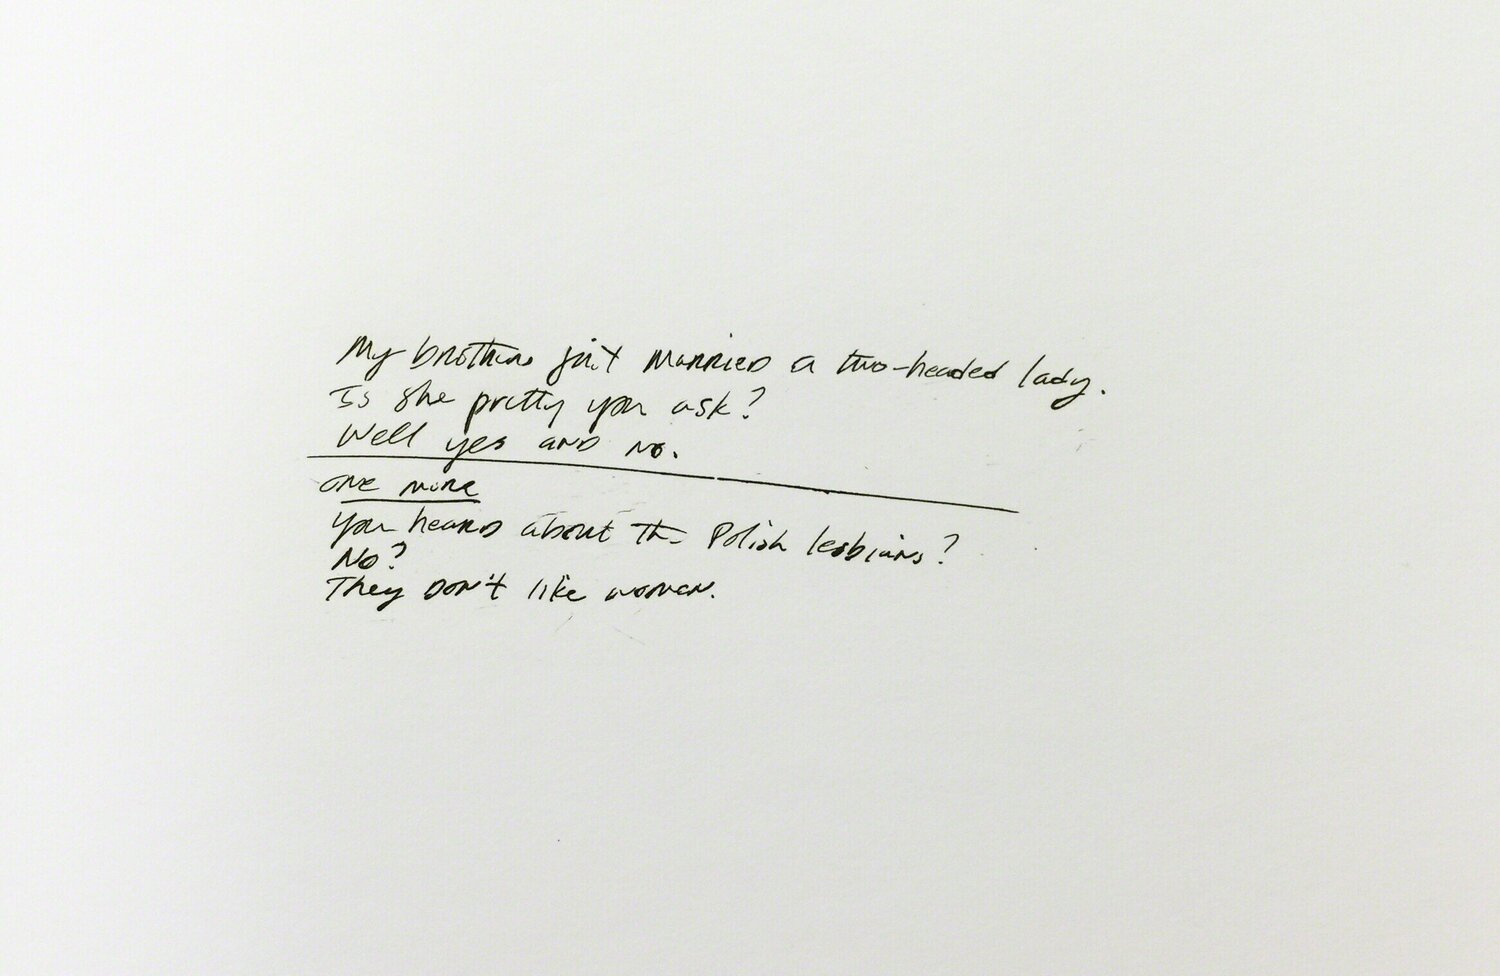 My brother just married a two-headed lady.
Is she pretty you ask?
Well yes and no.
one more
you heard about the Polish lesbians?
No?
They don't like women.